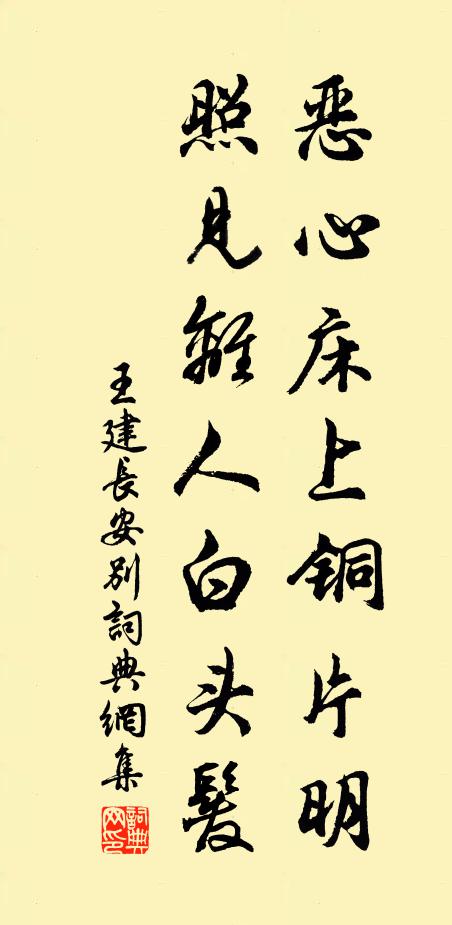 恶心床上铜片明
照见離人白头髮
王建長安別詞典網集
詞典网印